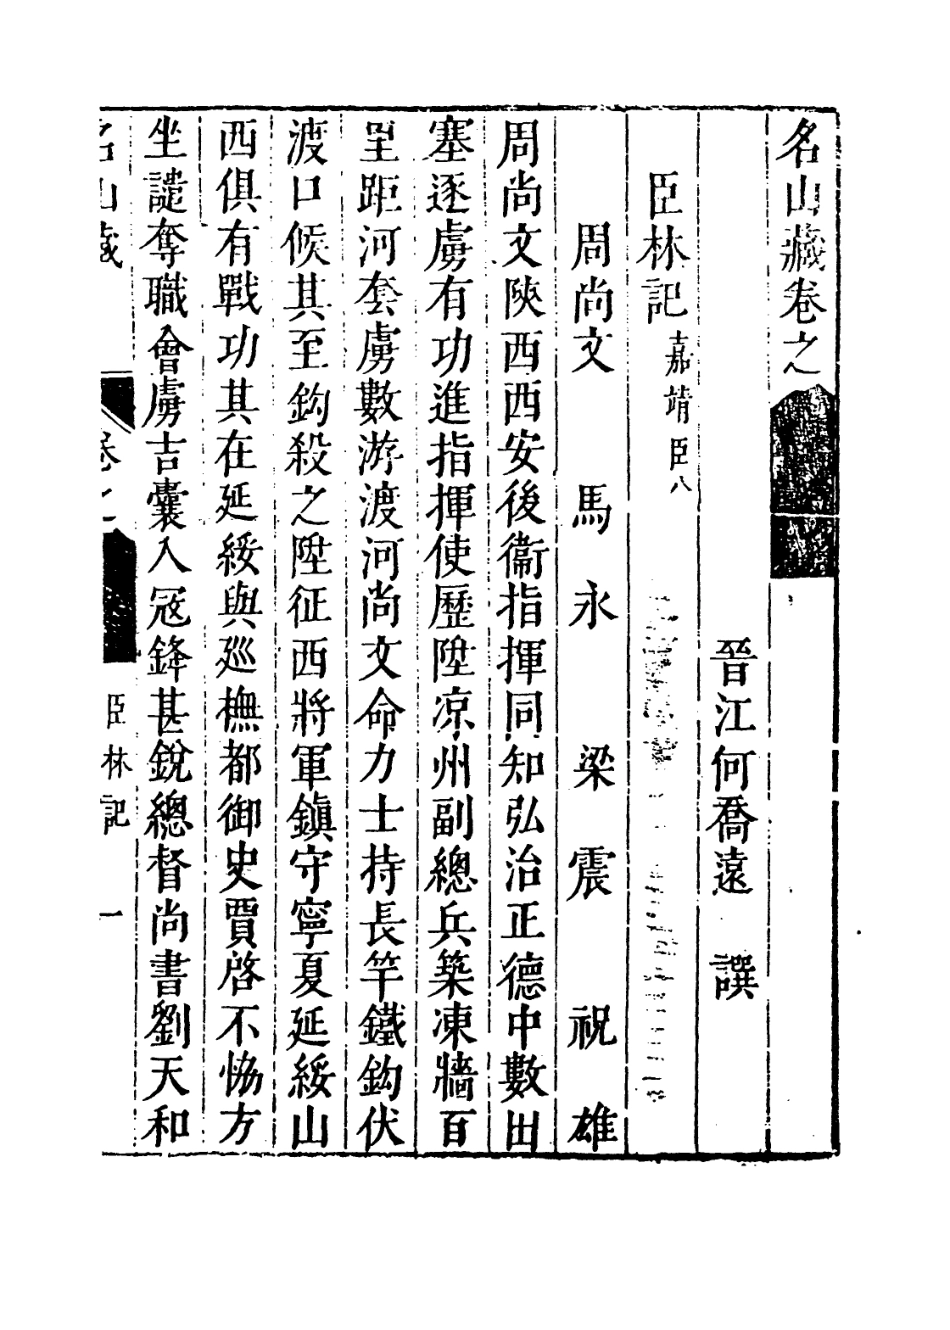 名山藏卷之
晉江何喬遠 譔
臣林記 嘉靖臣八
周尚文 馬永 梁震 祝雄
周尚文陝西西安後衞指揮同知弘治正德中數出
塞逐虜有功進指揮使歷陞凉州副總兵築凍牆百
里距河套虜數游渡河尚文命力士持長竿鐵鈎伏
渡口候其至鈎殺之陞征西將軍鎭守寧夏延綏山
西俱有戰功其在延綏與廵橅都御史賈啓不恊方
坐譴奪職會虜吉囊入寇鋒甚銳總督尚書劉天和
名山藏 卷之 臣林記 一